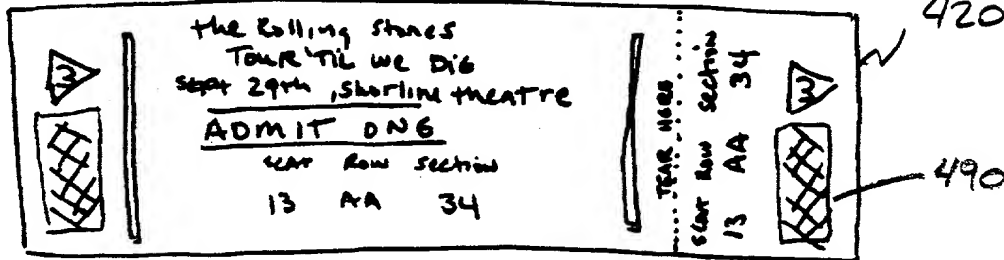 420
the Rolling Stones
TOUR 'TIL WE DIE
Sept 29th, Shorline theatre
ADMIT ONE
SEAT ROW Section
13 AA 34
TEAR HERE
SEAT ROW Section
13 AA 34
3
3
490